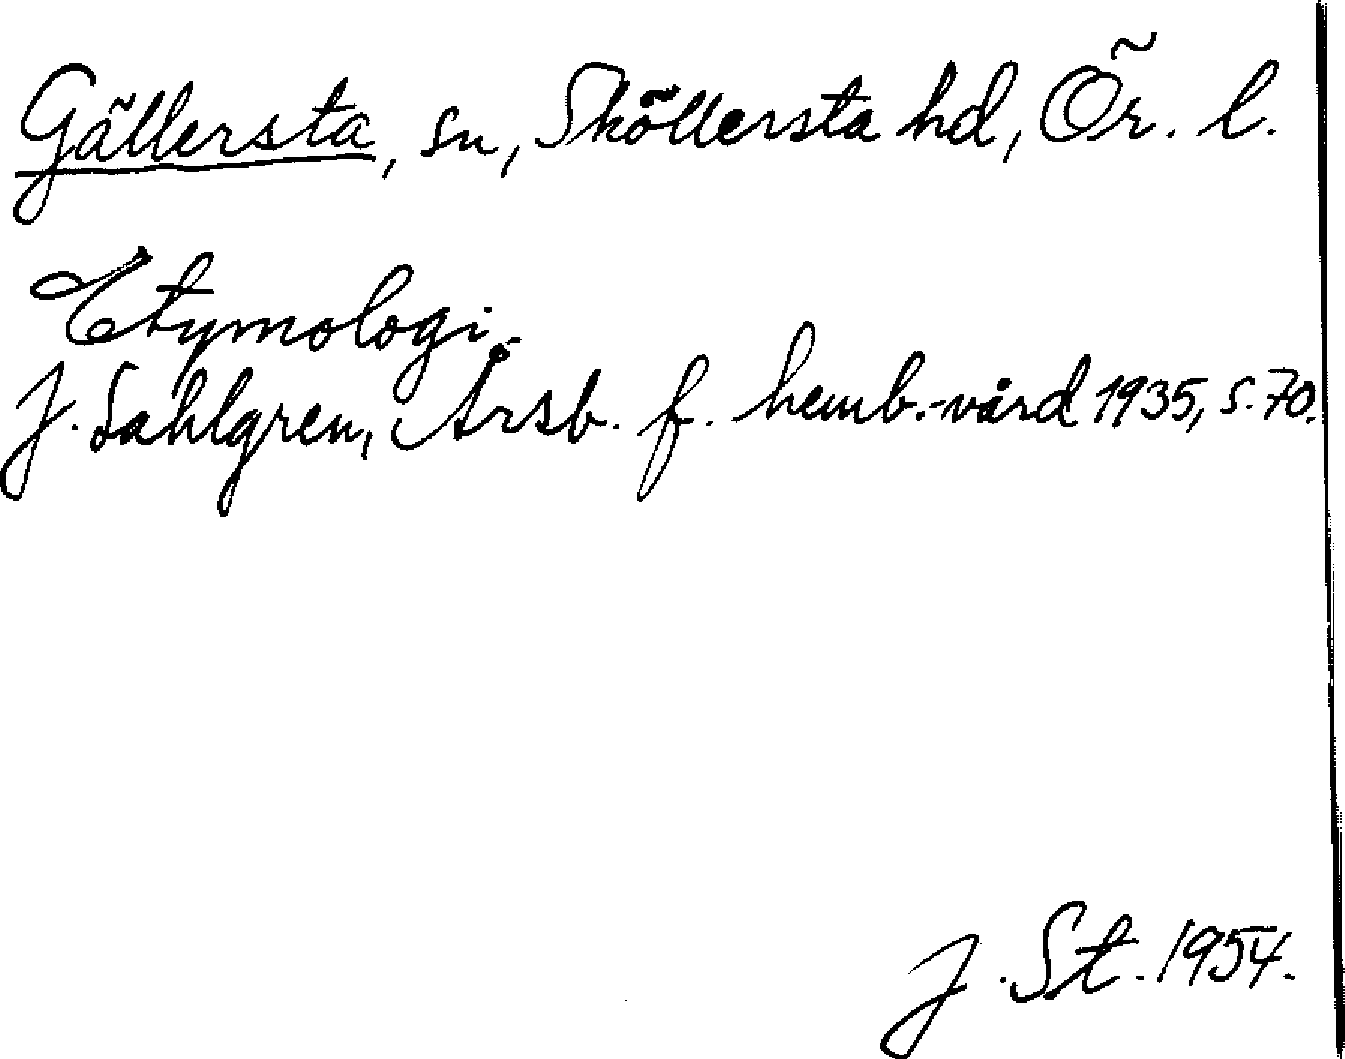 Gällersta, sn, Sköllersta hd, Ör. l.
Etymologi.
J. Sahlgren, Årsb. f. hemb.-vård 1935, s. 70.
J. St. 1954.